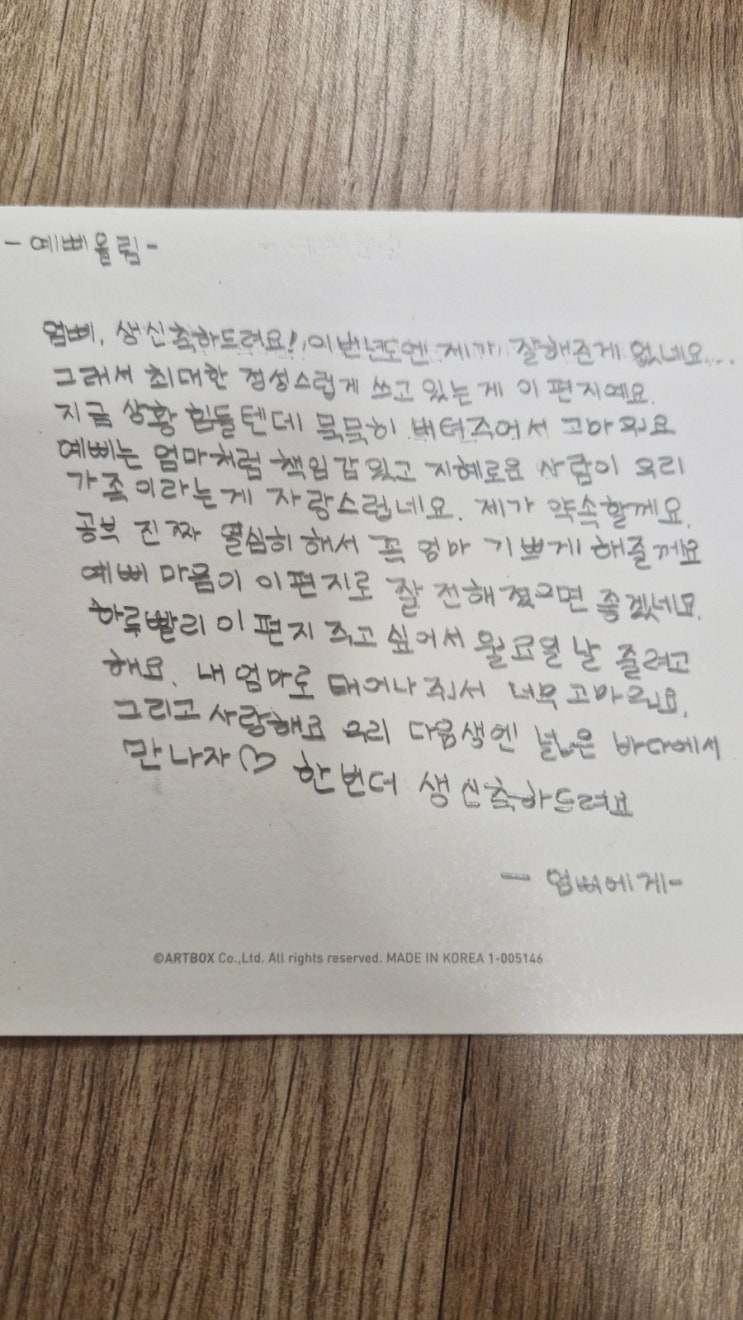 -예삐올림-
엄삐, 생신축하드려요! 이번년도엔 제가 잘해준게 없네요...
그래서 최대한 정성스럽게 쓰고 있는게 이 편지예요.
지금 상황 힘들텐데 묵묵히 버텨주어서 고마워요
예삐는 엄마처럼 책임감있고 지혜로운 사람이 우리
가족이라는게 자랑스럽네요. 제가 약속할께요.
공부 진짜 열심히 해서 꼭 엄마 기쁘게 해줄께요
예삐 마음이 이편지로 잘 전해졌으면 좋겠네요.
하루빨리 이 편지 주고 싶어서 월요일 날 줄려고
해요. 내 엄마로 태어나줘서 너무 고마워요.
그리고 사랑해요 우리 다음생엔 넓은 바다에서
만나자♡ 한번더 생신축하드려요
- 엄삐에게-
©ARTBOX Co.,Ltd. All rights reserved. MADE IN KOREA 1-005146